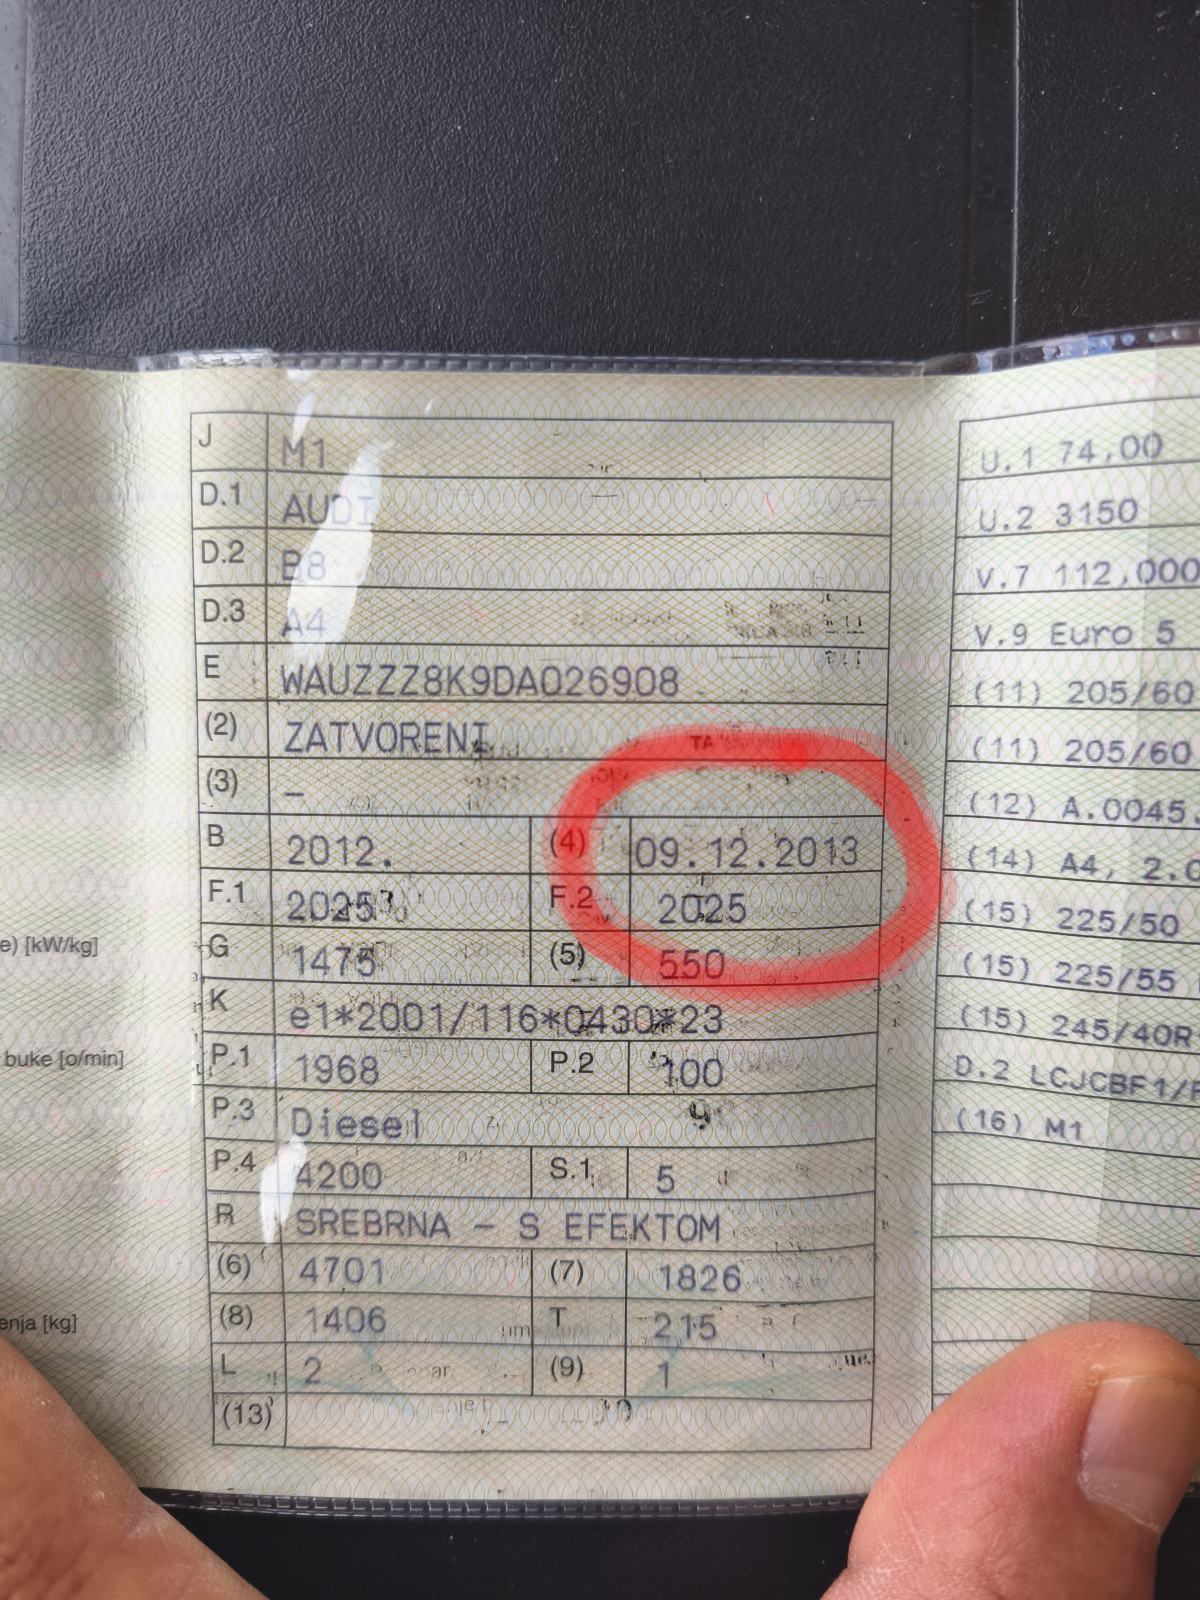 J M1
D.1 AUDI
D.2 B8
D.3 A4
E WAUZZZ8K9DA026908
(2) ZATVORENI
(3) –
B 2012. (4) 09.12.2013
F.1 2025 F.2 2025
G 1475 (5) 550
K e1*2001/116*0430*23
P.1 1968 P.2 100
P.3 Diesel
P.4 4200 S.1 5
R SREBRNA – S EFEKTOM
(6) 4701 (7) 1826
(8) 1406 T 215
L 2 (9) 1
(13)
e) [kW/kg]
buke [o/min]
enja [kg]
U.1 74,00
U.2 3150
V.7 112,000
V.9 Euro 5
(11) 205/60
(11) 205/60
(12) A.0045
(14) A4, 2.0
(15) 225/50
(15) 225/55
(15) 245/40R
D.2 LCJCBF1/
(16) M1